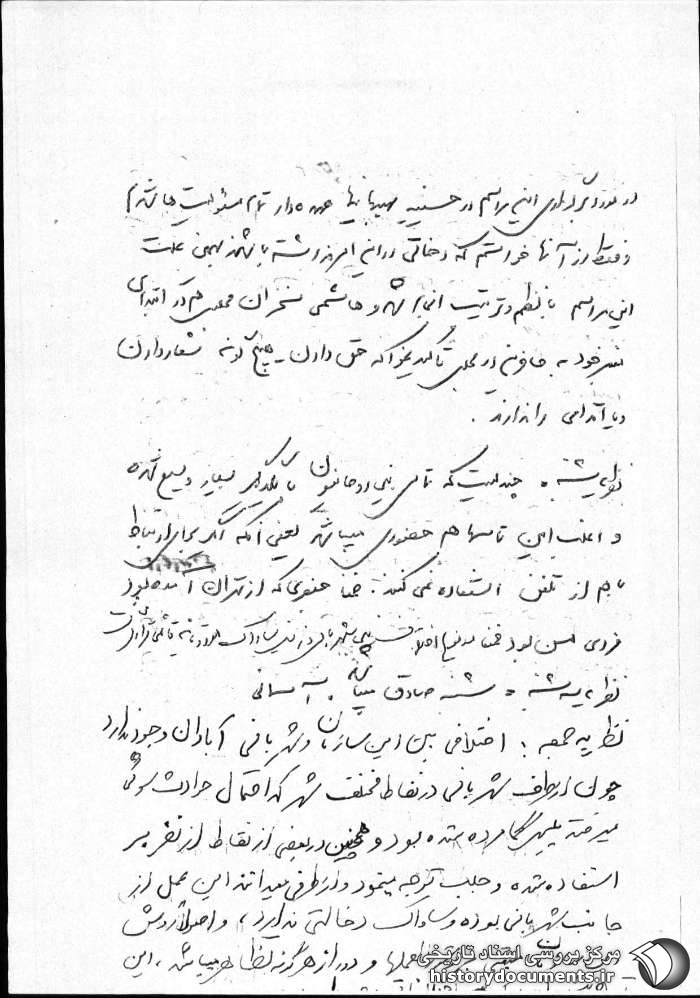 در مورد برگزاری این مراسم در حسینیه اصفهانیها عهده‌دار تمام مسئولیت‌ها شدم
و فقط از آنها خواستم که دخالتی در این امر نداشته باشند بهمین علت
این مراسم با نظم و ترتیب انجام شد و هاشمی سخنران مجلس هم در ابتدای
سخن خود به حاضرین در مجلس تأکید نمود که حق دادن هیچ گونه شعار دادن
و یا اقدامی را ندارند.
نظریه شنبه. چندیست که تماس بین روحانیون با یکدیگر بسیار وسیع شده
و اغلب این تماسها هم حضوری میباشد یعنی اینکه اگر برای ارتباط
با هم از تلفن استفاده نمی کنند. ضمناً که از تهران آمده بود
فردی مسن بود ضمناً موضوع اختلاف شهربانی ساواک
نظریه یکشنبه. شنبه صادق میباشد. آسمانی
نظریه جمعه: اختلافی بین این سازمان و شهربانی آبادان وجود ندارد
چون از طرف شهربانی در نقاط مختلف شهر که احتمال حوادث سوئی
میرفت پلیس گمارده شده بود و همچنین در بعضی از نقاط از نفربر
استفاده شده و جلب توجه مینمود و از طرفی میدانند این عمل از
جانب شهربانی بوده و ساواک دخالتی ندارد، و اصولاً روش
و دور از هرگونه تظاهر میباشد، این
مرکز بررسی اسناد تاریخی
historydocuments.ir